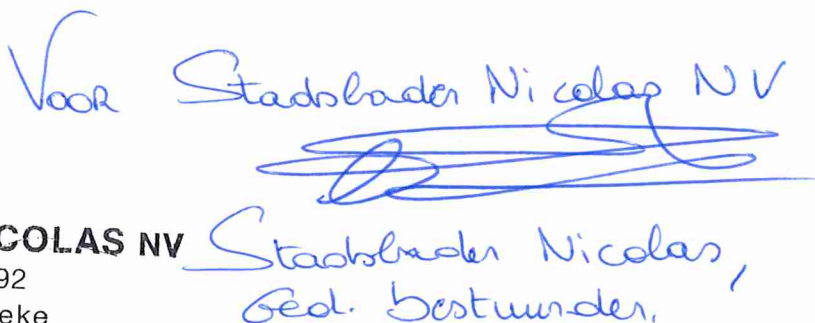 Voor Stadsbader Nicolas NV
COLAS NV
Stadsbader Nicolas,
92
Ged. bestuurder.
eke